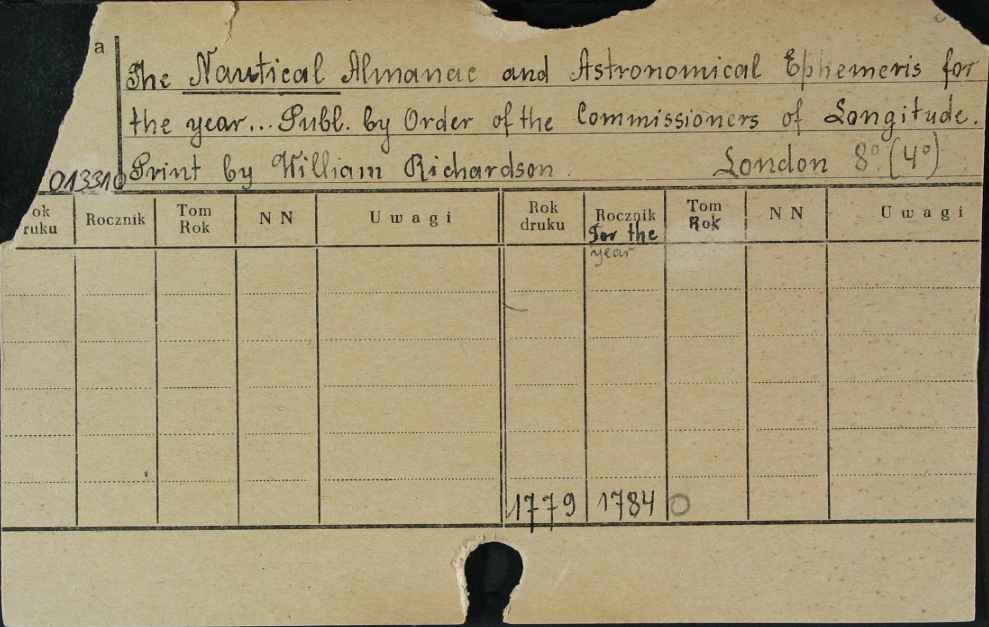 a
The Nautical Almanac and Astronomical Ephemeris for
the year... Publ. by Order of the Commissioners of Longitude.
013310 Print by William Richardson. London 8° (4°)
ok ruku Rocznik Tom Rok NN Uwagi Rok druku Rocznik For the year Tom Rok NN Uwagi
1779 1784 O